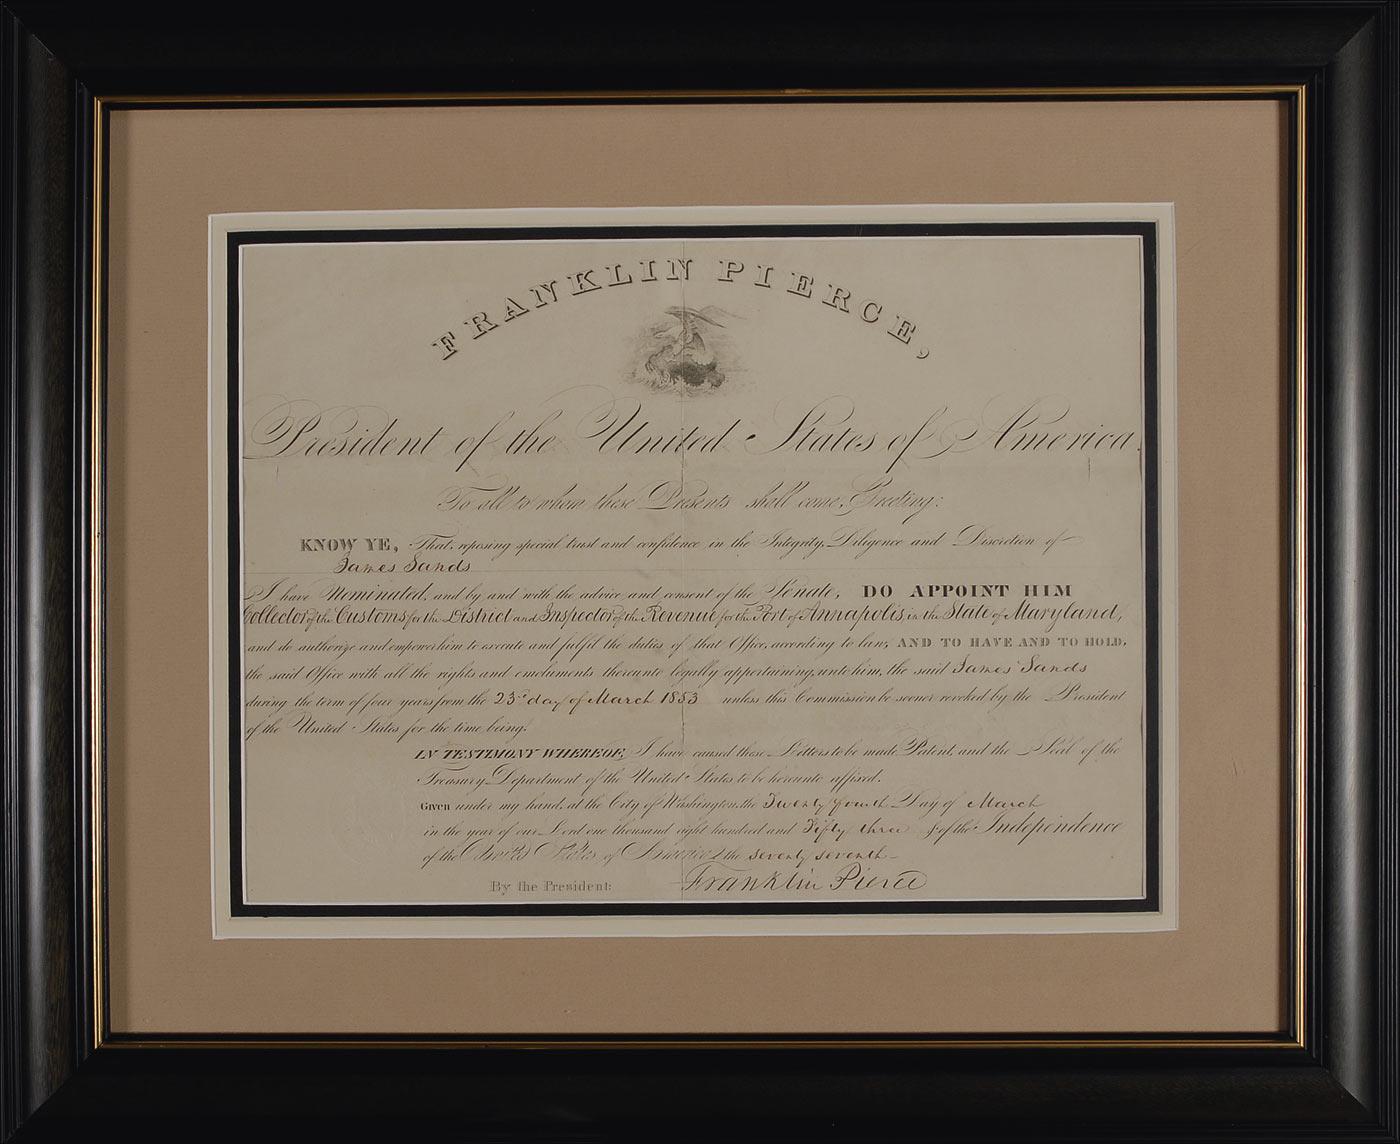 FRANKLIN PIERCE,
President of the United States of America.
To all to whom these Presents shall come, Greeting:
KNOW YE, That, reposing special trust and confidence in the Integrity, Diligence and Discretion of
James Sands
I have Nominated, and by and with the advice and consent of the Senate, DO APPOINT HIM
Collector of the Customs for the District and Inspector of the Revenue for the Port of Annapolis, in the State of Maryland,
and do authorize and empower him to execute and fulfil the duties of that Office, according to law; AND TO HAVE AND TO HOLD,
the said Office with all the rights and emoluments thereunto legally appertaining, unto him, the said James Sands
during the term of four years from the 23d day of March 1853 unless this Commission be sooner revoked by the President
of the United States for the time being.
IN TESTIMONY WHEREOF, I have caused these Letters to be made Patent, and the Seal of the
Treasury Department of the United States to be hereunto affixed.
Given under my hand, at the City of Washington, the Twenty fourth Day of March
in the year of our Lord one thousand eight hundred and Fifty three & of the Independence
of the United States of America, the seventy seventh
By the President: Franklin Pierce